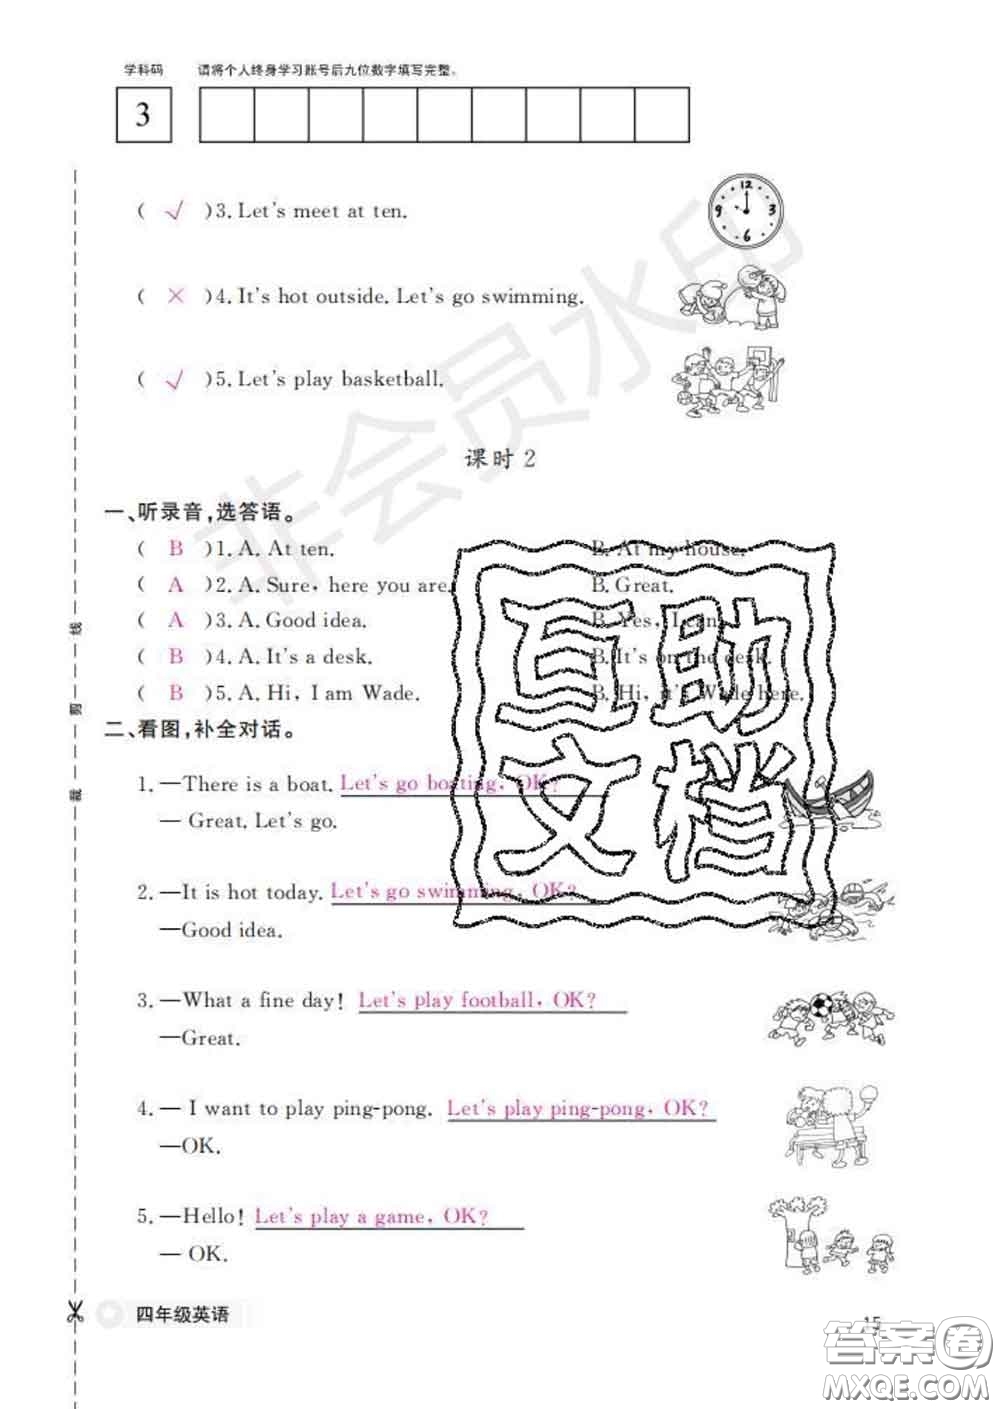 学科码 请将个人终身学习账号后九位数字填写完整。
3
( √ )3. Let's meet at ten.
12
9 3
6
( × )4. It's hot outside. Let's go swimming.
( √ )5. Let's play basketball.
课时 2
一、听录音,选答语。
( B )1. A. At ten. B. At my house.
( A )2. A. Sure, here you are. B. Great.
( A )3. A. Good idea. B. Yes, I can.
( B )4. A. It's a desk. B. It's on the desk.
( B )5. A. Hi, I am Wade. B. Hi, it's Wade here.
二、看图,补全对话。
1. —There is a boat. Let's go boating, OK?
— Great. Let's go.
2. —It is hot today. Let's go swimming, OK?
—Good idea.
3. —What a fine day! Let's play football, OK?
—Great.
4. — I want to play ping-pong. Let's play ping-pong, OK?
—OK.
5. —Hello! Let's play a game, OK?
— OK.
裁 剪 线
四年级英语
15
非会员水印
互助
文档
答案圈
MXQE.COM